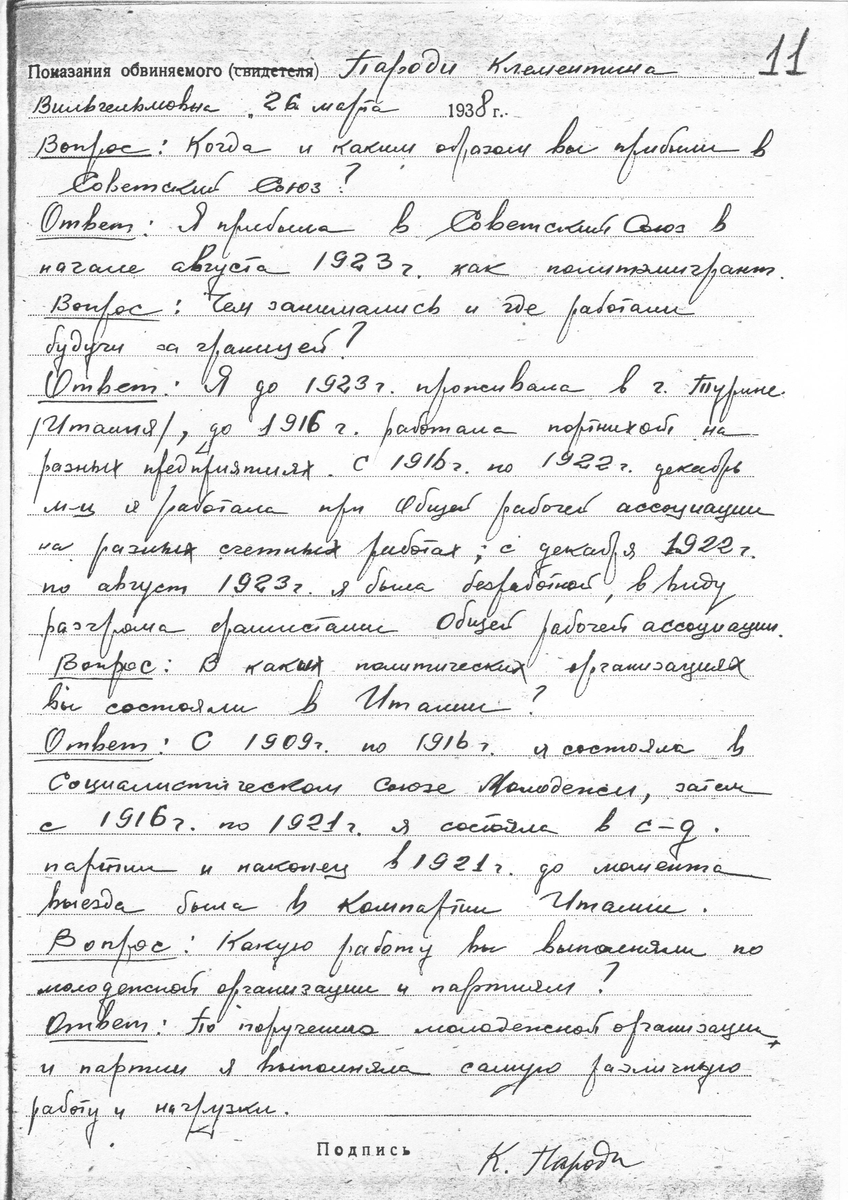 11
Показания обвиняемого (свидетеля) Пароди Клементина
Вильгельмовна „ 26 марта 1938 г.
Вопрос: Когда и каким образом вы прибыли в
Советский Союз?
Ответ: Я прибыла в Советский Союз в
начале августа 1923 г. как политэмигрант.
Вопрос: Чем занимались и где работали
будучи за границей?
Ответ: Я до 1923 г. проживала в г. Турине
/Италия/, до 1916 г. работала портнихой на
разных предприятиях. С 1916 г. по 1922 г. декабрь
м-ц я работала при Общей рабочей ассоциации
на разных счетных работах; с декабря 1922 г.
по август 1923 г. я была безработной, в виду
разгрома фашистами Общей рабочей ассоциации.
Вопрос: В каких политических организациях
вы состояли в Италии?
Ответ: С 1909 г. по 1916 г. я состояла в
Социалистическом Союзе Молодежи, затем
с 1916 г. по 1921 г. я состояла в с-д.
партии и наконец в 1921 г. до момента
выезда была в Компартии Италии.
Вопрос: Какую работу вы выполняли по
молодежной организации и партиям?
Ответ: По поручению молодежной организации
и партии я выполняла самую различную
работу и нагрузки.
Подпись К. Пароди